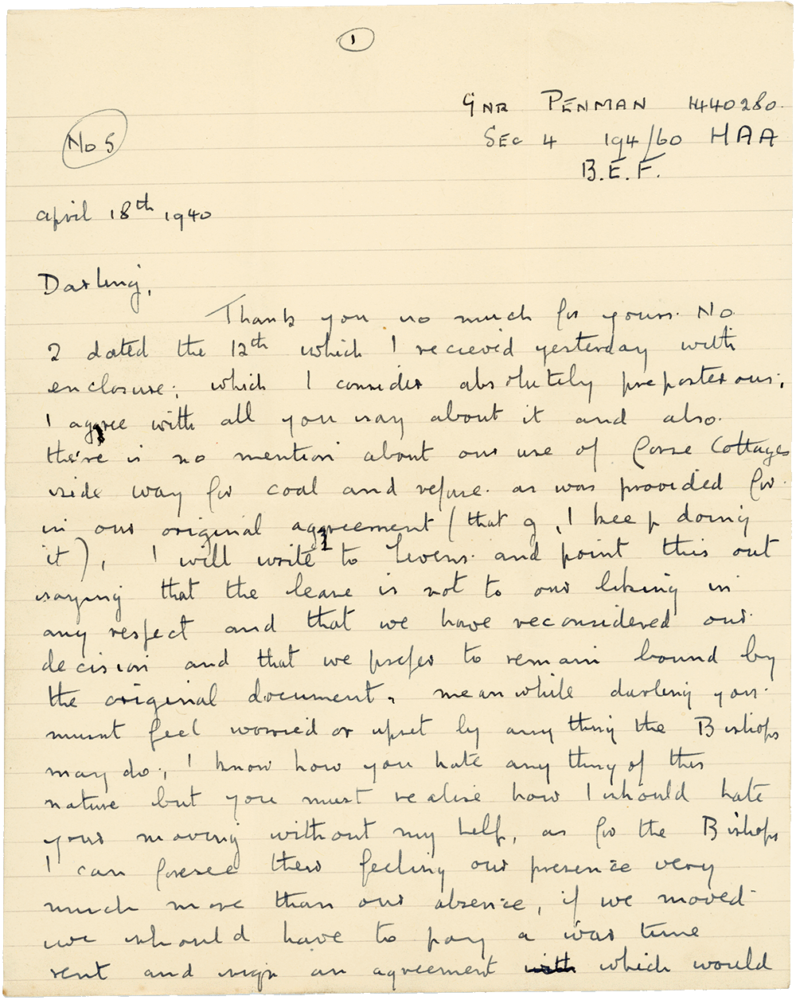 1
GNR PENMAN 1440280.
No 5
SEC 4 194/60 HAA
B.E.F.
April 18th 1940
Darling,
Thank you so much for yours. No
2 dated the 12th which I recieved yesterday with
enclosure; which I consider absolutely preposterous;
I agree with all you say about it and also.
there is no mention about our use of Corse Cottages
side way for coal and refuse. as was provided for
in our original agreement (that g, I keep doing
it), I will write to Livens. and point this out
saying that the lease is not to our liking in
any respect and that we have reconsidered our
decision and that we prefer to remain bound by
the original document. meanwhile darling you
musnt feel worried or upset by any thing the Bishops
may do., I know how you hate any thing of this
nature but you must realise how I should hate
your moving without my help, as for the Bishops
I can foresee them feeling our presence very
much more than our absence, if we moved
we should have to pay a war time
rent and sign an agreement with which would